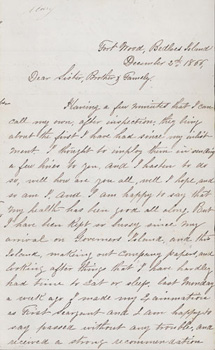 Fort Wood, Bedlows Island
December 2d. 1866.
Dear Sister, Brother & Family.
Having a few minutes that I can
call my own, after inspection, they being
about the first I have had since my enlist-
ment. I thought to imploy them in writing
a few lines to you. And I hasten to do
so, well how are you all, well I hope, and
so am I. And I am happy to say that
my health has been good all along. But
I have been kept so busy since my
arrival on Governors Island, and this
Island, making out Company papers, and
looking after things that I have hardly
had time to eat or sleep, last Monday
a week ago I made my Examination
as First Sergeant and I am happy to
say passed without any trouble, and
received a strong recommendation